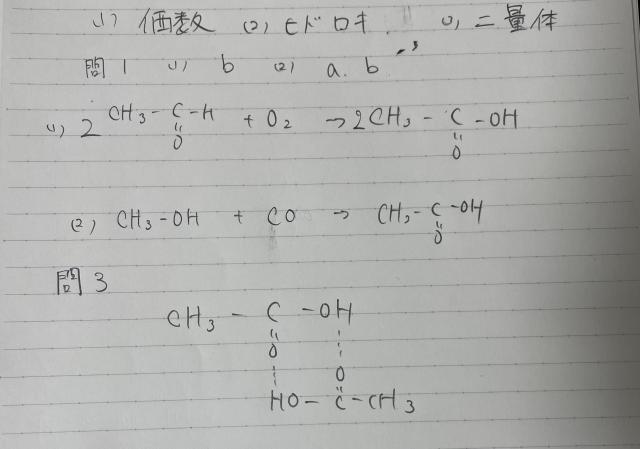 (1) 価数 (2) ヒドロキ. (3) 二量体
問1 (1) b (2) a. b
(1) 2 CH3 - C - H + O2 → 2CH3 - C - OH
O O
(2) CH3 - OH + CO → CH3 - C - OH
O
問3
CH3 - C - OH
O O
HO - C - CH3